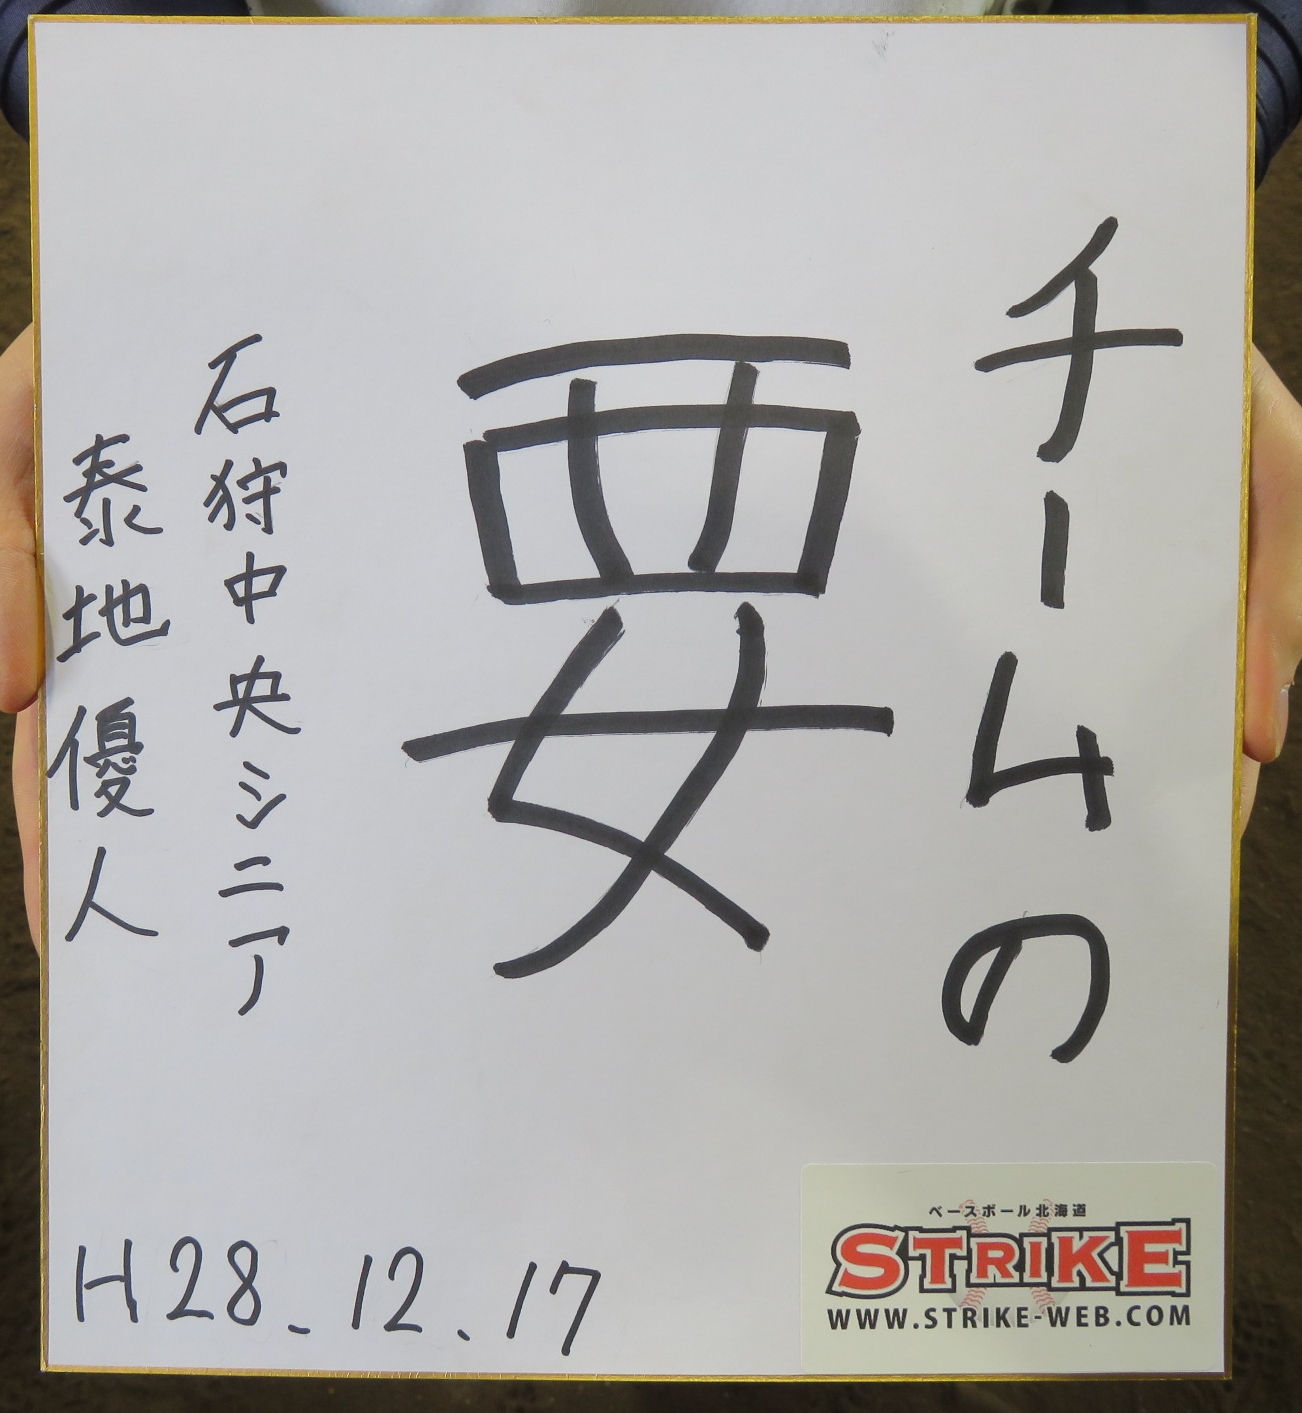 チームの
要
石狩中央シニア
泰地優人
H28.12.17
ベースボール北海道
STRIKE
WWW.STRIKE-WEB.COM